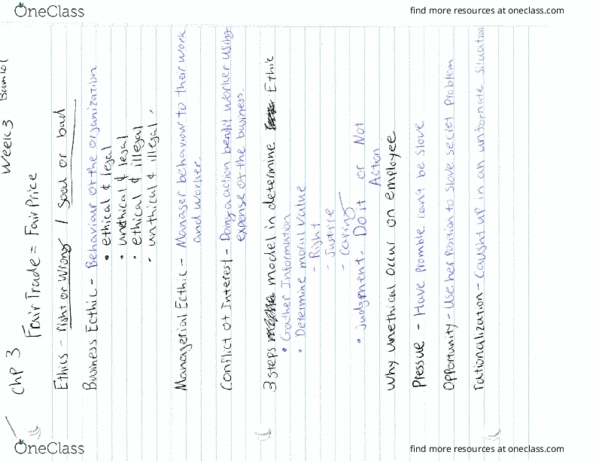 OneClass
find more resources at oneclass.com
Chp 3
Week 3
Fair Trade = Fair Price
Ethics - Right or Wrong / Good or bad
Business Ecthic - Behaviour of the organization
• ethical & legal
• unethical & legal
• ethical & illegal
• unthical & illegal
Managerial Ecthic - Manager behaviour to their work
and worker.
Conflict of Interest - Doing a action benfit worker using
expense of the business.
3 steps model in determine Ethic
• Gather Information
• Determine moral value
- Right
- Justice
- Caring
• judgment - Do it or Not
Action
Why unethical occur on employee
Pressue - Have promble can't be slove
Opportunity - Use her Position to slove secret Problem
rationalization - Caught up in an unfornate situation
OneClass
find more resources at oneclass.com